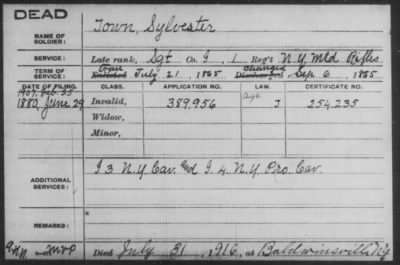 DEAD
NAME OF SOLDIER: Town, Sylvester
SERVICE: Late rank, Sgt Co. I, 1 Reg't N.Y. Mtd Rifles
TERM OF SERVICE: Enlisted Tran July 21, 1865 Discharged changed Sep. 6, 1865
DATE OF FILING. CLASS. APPLICATION NO. LAW. CERTIFICATE NO.
1907. Feb. 25 age
1880, June 29 Invalid, 389.956 J 254.235
Widow,
Minor,
ADDITIONAL SERVICES: I 3 N.Y. Cav. and I. 4 N.Y. Pro. Cav.
REMARKS:
Died July 31, 1916, at Baldwinsville N.Y.